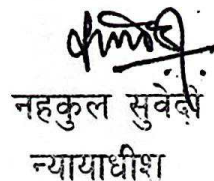 नहकुल सुवेदी
न्यायाधीश